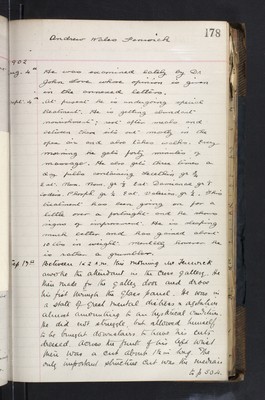 178
Andrew Wales Fenwick
1905
Aug. 4th He was examined lately by Dr
John Love whose opinion is given
in the annexed letters.
Sept. 4th At present he is undergoing special
treatment. He is getting abundant
nourishment; rest after meals and
relieves there sits out mostly in the
open air and also takes walks. Every
morning he gets forty minutes
massage. He also gets three times a
day pills containing
Ext. Nux Vom. gr ¼ Ext. Damiana gr ¼
This
treatment has been going on for a
little over a fortnight and he shows
signs of improvement. He is sleeping
much better and has gained about
10 lbs in weight. Mentally however he
is rather a grumbler.
Sep. 15th Between 1 & 2 a.m. this morning Mr Fenwick
awoke the attendant in the Cross gallery. He
then made for the gallery door and drove
his fist through the glass panel. He was in
a state of great mental distress & agitation
almost amounting to an hysterical condition.
He did not struggle but allowed himself
to be brought downstairs to have his cuts
dressed. Across the front of his left wrist
there was a cut about 1½ in long. The
only important structure cut was the median
to p 532.